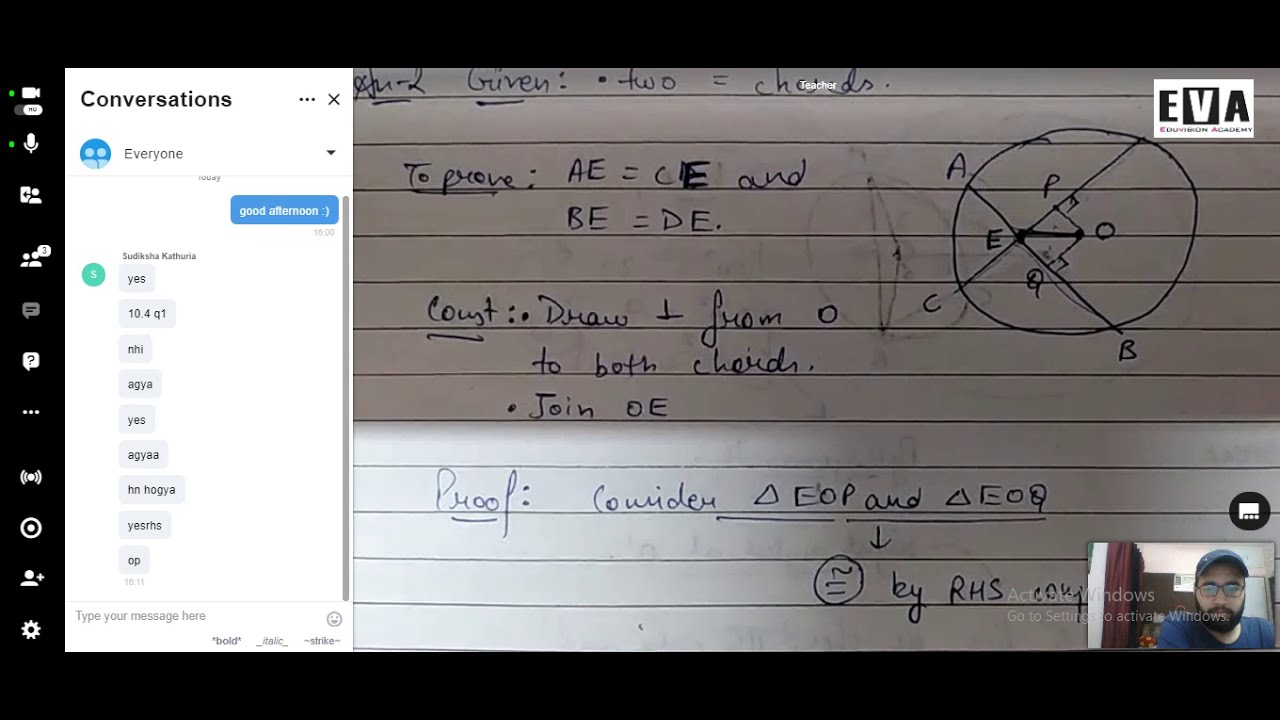 Conversations
Everyone
Today
good afternoon :)
18:00
Sudiksha Kathuria
S
yes
10.4 q1
nhi
agya
yes
agyaa
hn hogya
yesrhs
op
18:11
Type your message here
*bold* _italic_ ~strike~
HD
3
Given: • two = chords.
Teacher
EVA
EDUVISION ACADEMY
To prove: AE = CE and
BE = DE.
A
P
E
O
Q
C
B
Const: • Draw ⊥ from O
to both chords.
• Join OE
Proof: Consider △EOP and △EOQ
↓
≅ by RHS
Activate Windows
Go to Settings to activate Windows.